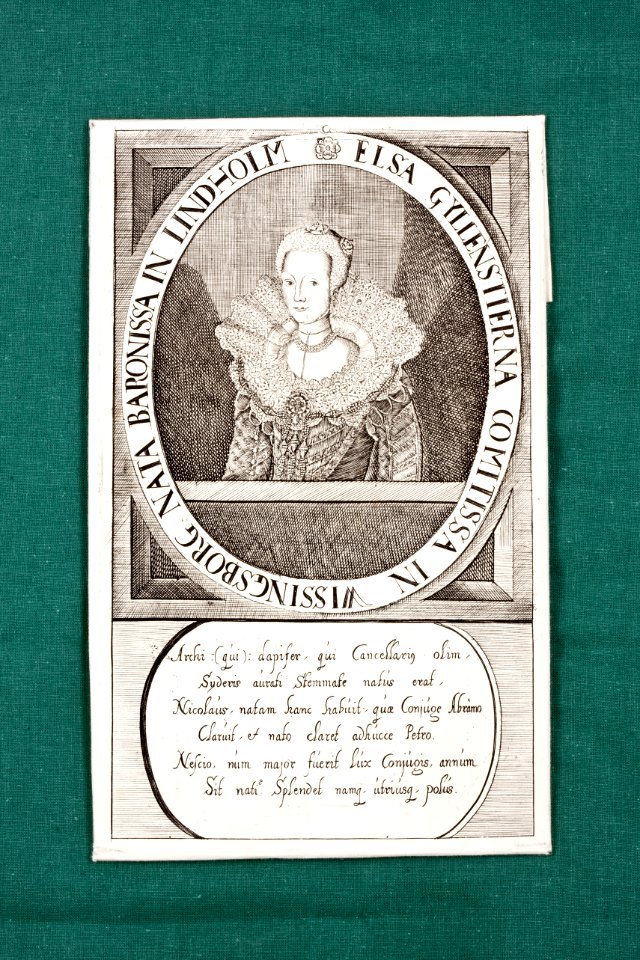 ELSA GYLLENSTIERNA COMITISSA IN WISSINGSBORG. NATA BARONISSA IN LINDHOLM
Archi:(qui): dapifer, qui Cancellariꝰ olim,
Syderis aurati Stemmate natus erat,
Nicolaus, natam hanc habuit, quæ Conjuge Abramo
Claruit, et nato claret adhucce Petro.
Nescio, num major fuerit lux Conjugis, annum
Sit natiꝰ Splendet namq, utriusq, polus.